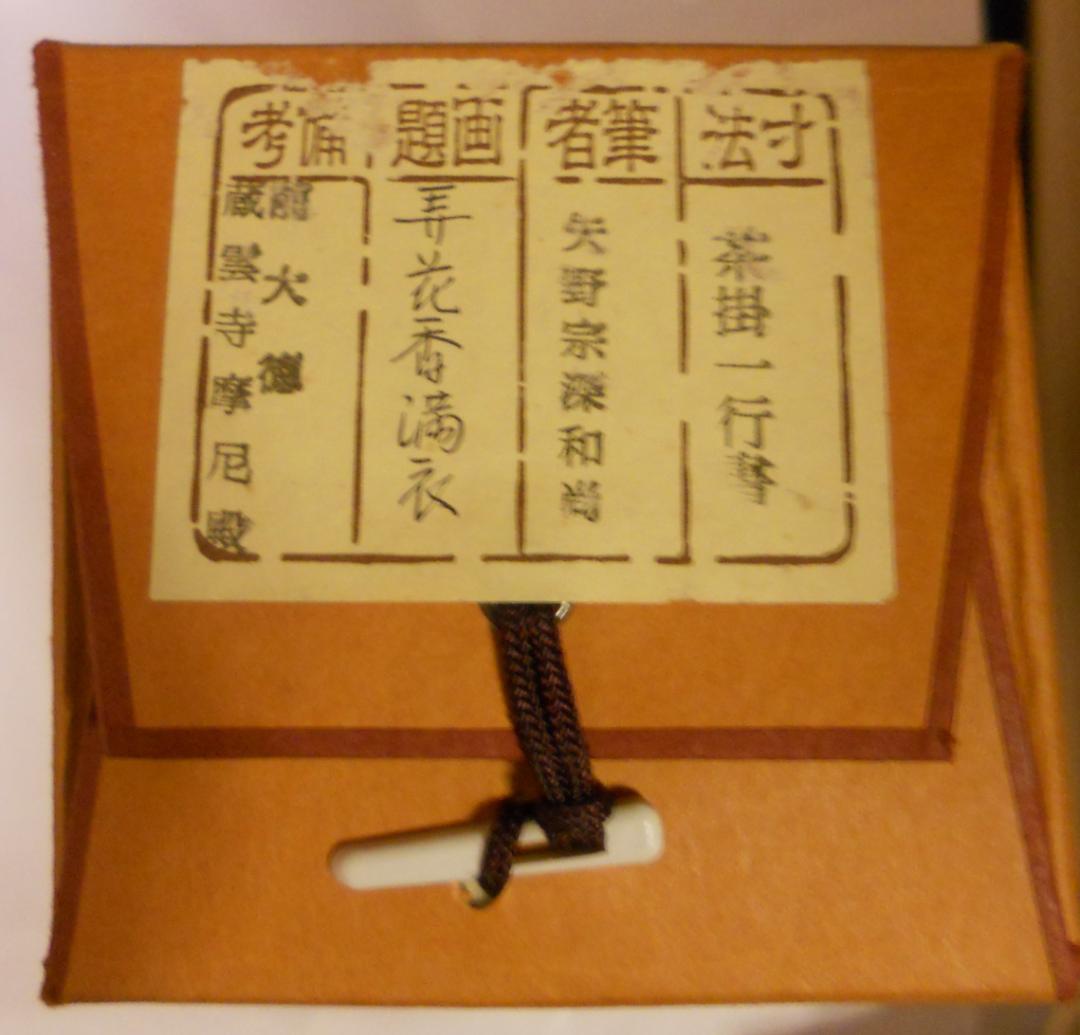 寸法
茶掛一行書
筆者
矢野宗深和尚
画題
弄花香満衣
備考
前大徳
蔵雲寺摩尼殿